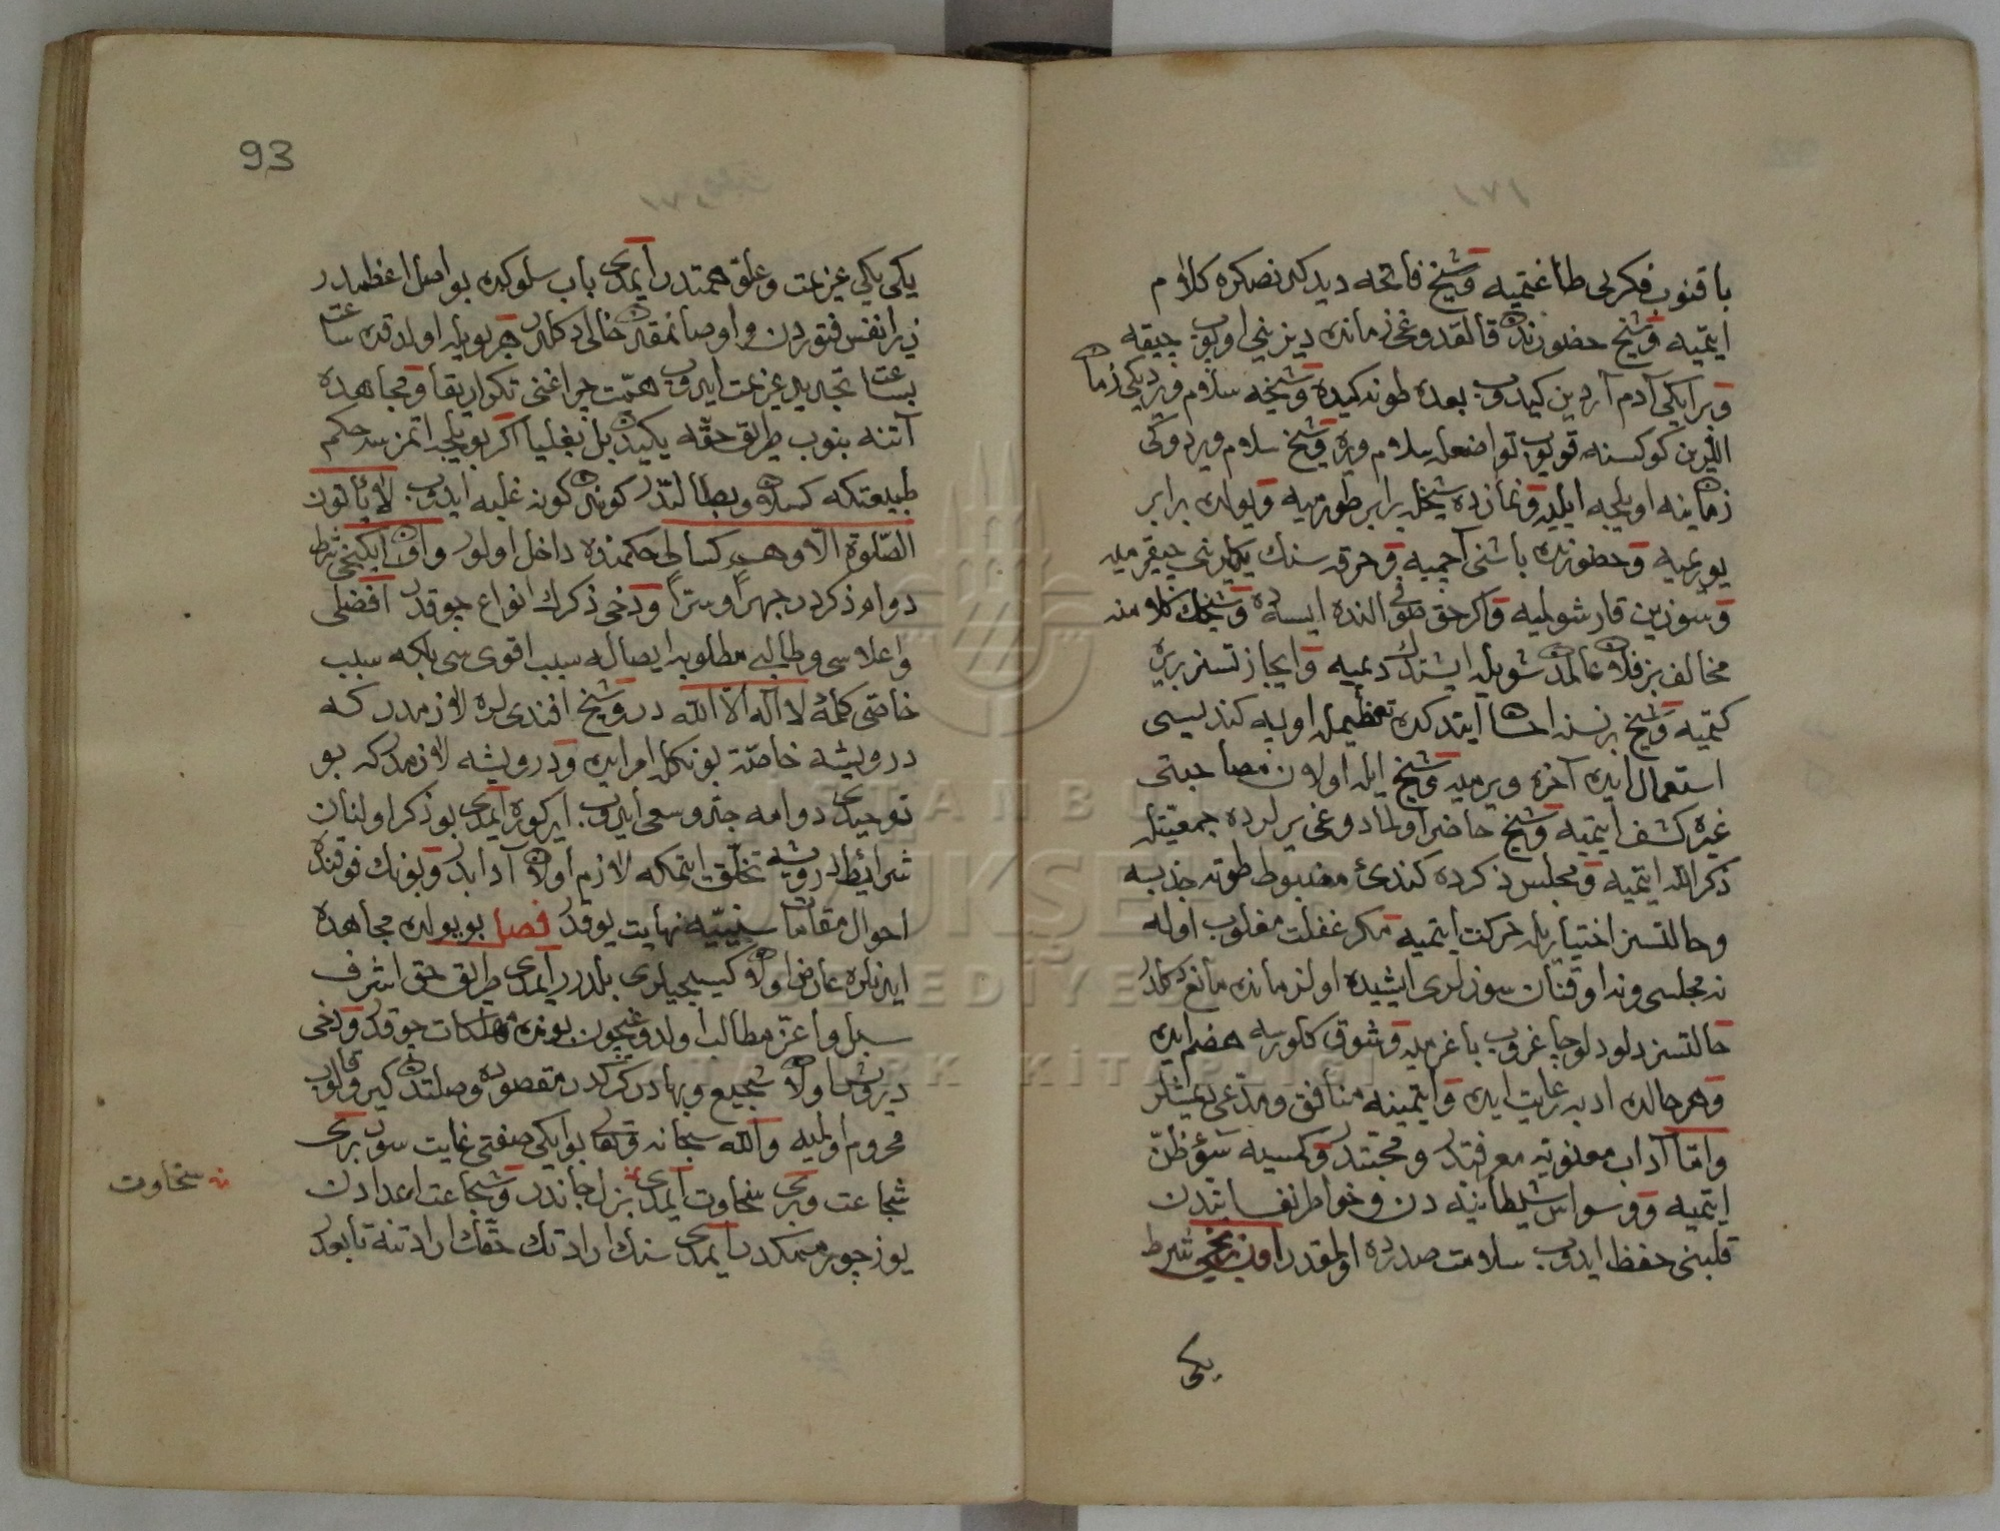 باقنوب فكرلى طاغتميه و شيخ فاتحه ديدكدنصكره كلام
ايتميه و شيخ حضورنده قالقدوغى زمانده ديزينى اوپوب چيقه
و براىكى آدم آردين كيدوب بعده طونه كيده و شيخه سلام ويرديكى زمان
اللرين كوكسنه قويوب تواضعله سلام ويره و شيخ سلام ويردوكى
زماينه اويلجه ايليه و نمازده شيخله برابر طورميه و يولده برابر
يوريميه و حضورنده باشنى آچميه و خرقه سنك يكلرنى چيقرميه
و سوزين قارشولميه و اكر حق طرفى النده ايسه ده و شيخك كلامنه
مخالف بز فلان عالمدن شويله ايشتدك ديميه و ايجازتسز بريره
كيتميه و شيخ بر نسنه احسان ايتدكده تعظيمله اوليه كنديسى
استعمال ايده آخره ويرميه و شيخ ايله اولان مصاحبتى
غيره كشف ايتميه و شيخ حاضر اولمادوغى يرلرده جمعيتله
ذكر الله ايتميه و مجلس ذكرده كندى مضبوط طوته جذبه
و حالتسز اختياريله حركت ايتميه مكر غفلت مغلوب اوله
نه مجلسى و نه اوقنان سوزلرى ايشيده اول زمانده مانع دكلدر
حالتسز دلو دلو چاغروب باغرميه و شوق كلورسه هضم ايده
و هر حالده ادبه رعايت ايده و ايتمينه منافق و مدعى ديمشلر
و اما آداب معنويه معرفتدر و محبتدر و كمسيه سوء ظن
ايتميه و وسواس شيطانيه دن و خواطر نفسانيه دن
قلبنى حفظ ايدوب سلامت صدرده اولمقدر اون برنجى شرط
يكى
93
يكى يكى عزيمت و علو همتدر ايمدى باب سلوكده بو اصل اعظمدر
زيرا نفس فتوردن و اوصانمقدن خالى دكلدر هر بويله اولدقده ساعت
بساعت تجديد عزيمت ايدوب همت چراغنى تكرار يقا و مجاهده
آتنه بنوب طريق حقه يكيدن بل بغليا اكر بويلجه اتمزسه حكم
طبيعتكه كسلان و بطالتدر كوندن كونه غلبه ايدوب لا يأتون
الصلوة الا وهم كسالى حكمنده داخل اولور و اون ايكنجى شرط
دوام ذكردر جهراً و سراً و دخى ذكرك انواع چوقدر افضلى
و اعلاسى و طالبى مطلوبه ايصاله سبب اقوى سى بلكه سبب
خاصى كلمۀ لا اله الا الله در و شيخ افندى لره لازمدر كه
درويشه خاصّة بونكله امر ايده و درويشه لازمدر كه بو
توحيدى دوامه جد و سعى ايدوب ايركوره ايمدى بو ذكر اولنان
شرائطدر درويشه تخلق اتمكه لازم اولان آدابدر و بونك فوقنده
احوال مقامات سنيّيه نهايت يوقدر فصل بو يولده مجاهده
ايدنلره عارض اولان كيسجيلرى بلدرر ايمدى طريق حق اشرف
سبل و اعز مطالب اولدوغيچون بونده مهلكات چوقدر و دخى
درويش اولان شجيع و بهادر كركدر مقصوده وصلتدن كيرو قالوب
محروم اولميه و الله سبحانه و تعالى بو ايكى صفتى غايت سور برى
شجاعت و برى سخاوت ايمدى بزل جاندر و شجاعت اعدادن
يوز چويرممكدر ايمدى سنك ارادتك حقك ارادتنه تابعدر
سخاوت